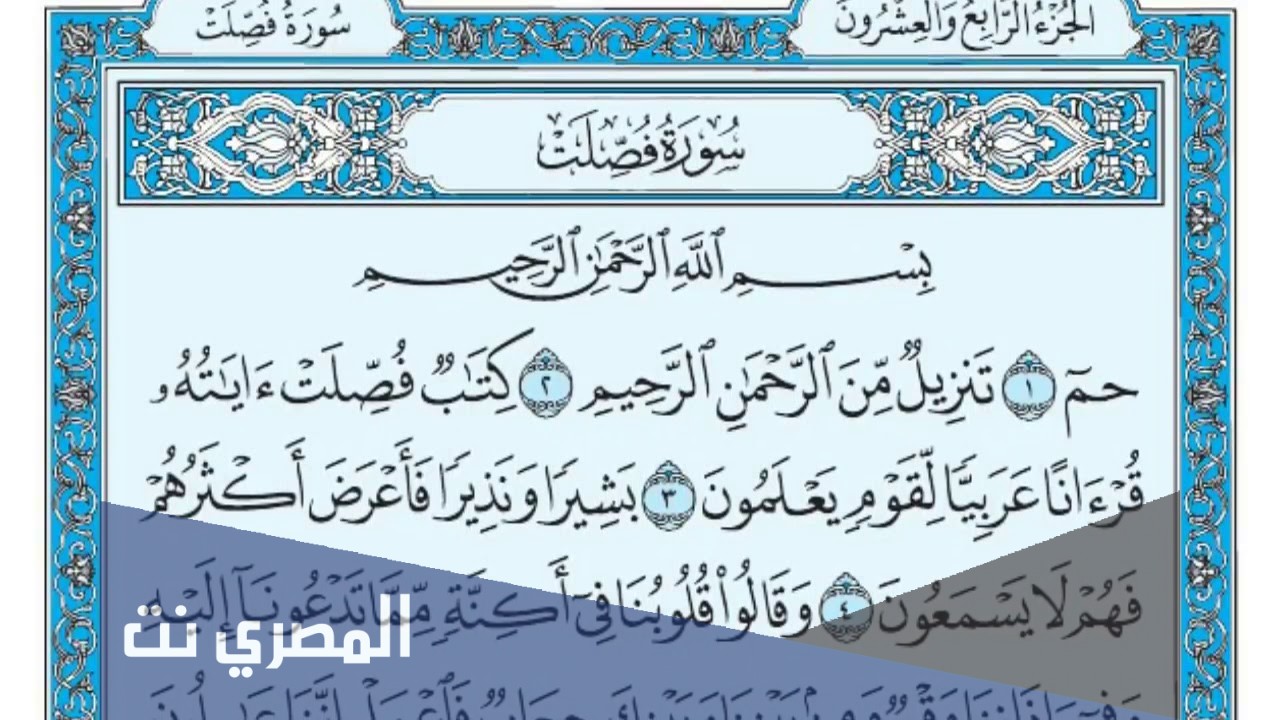 الجُزْءُ الرَّابِعُ وَالْعِشْرُونَ
سُورَةُ فُصِّلَتْ
سُورَةُ فُصِّلَتْ
بِسْمِ ٱللَّهِ ٱلرَّحْمَٰنِ ٱلرَّحِيمِ
حمٓ ١ تَنزِيلٌ مِّنَ ٱلرَّحْمَٰنِ ٱلرَّحِيمِ ٢ كِتَٰبٌ فُصِّلَتْ ءَايَٰتُهُۥ
قُرْءَانًا عَرَبِيًّا لِّقَوْمٍ يَعْلَمُونَ ٣ بَشِيرًا وَنَذِيرًا فَأَعْرَضَ أَكْثَرُهُمْ
فَهُمْ لَا يَسْمَعُونَ ٤ وَقَالُوا۟ قُلُوبُنَا فِىٓ أَكِنَّةٍ مِّمَّا تَدْعُونَآ إِلَيْهِ
المصري نت